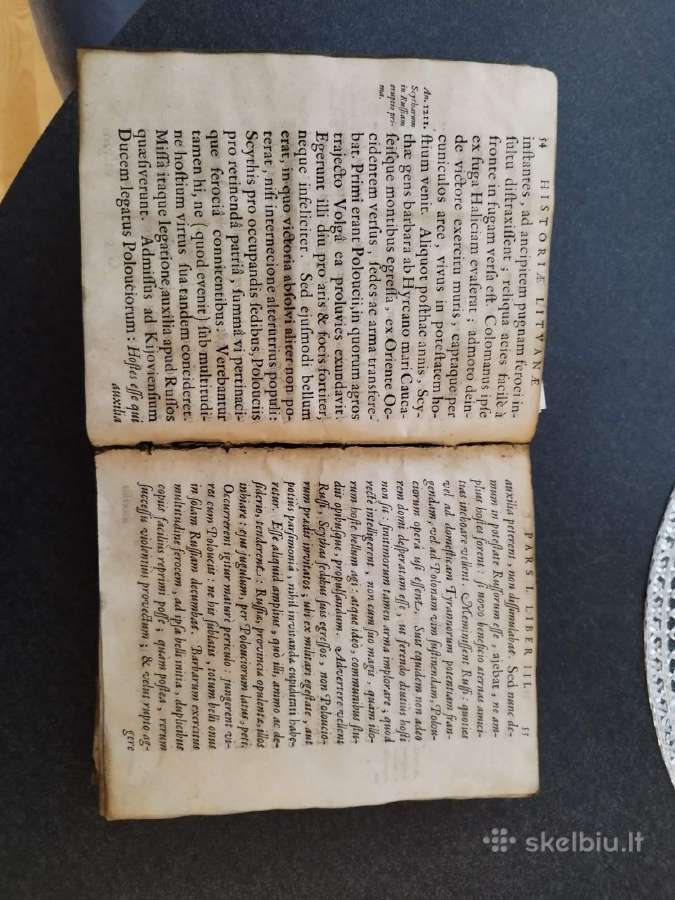 54 HISTORIÆ LITVANÆ
inſtantes, ad ancipitem pugnam feroci in-
ſultu diſtraxiſſent; reliqua acies facilè à
fronte in fugam verſa eſt. Colomanus ipſe
ex fuga Haliciam evaſerat; admoto dein-
de victore exercitu muris, captaque per
cuniculos arce, vivus in poteſtatem ho-
ſtium venit. Aliquot poſthac annis, Scy-
An. 1211.
Scytharum
in Ruſſiam
eruptio pri-
ma.
thæ gens barbara ab Hyrcano mari Cauca-
ſeiſque montibus egreſſa, ex Oriente Oc-
cidentem verſus, ſedes ac arma transfere-
bat. Primi erant Poloucii, in quorum agros
trajecto Volgâ ea proluvies exundavit.
Egerunt illi diu pro aris & focis fortiter,
neque infeliciter. Sed ejuſmodi bellum
erat, in quo victoria abſolvi aliter non po-
terat, niſi internecione alterutrius populi:
Scythis pro occupandis ſedibus, Polouciis
pro retinendâ patriâ, ſummâ vi pertinaci-
que ferociâ connitentibus. Verebantur
tamen hi, ne (quod evenit) ſub multitudi-
ne hoſtium virtus ſua tandem concideret.
Miſſâ itaque legatione, auxilia apud Ruſſos
quæſiverunt. Admiſſus ad Kijovienſium
Ducem legatus Polouciorum: Hoſtes eſſe qui
auxilia
PARS I. LIBER III. 55
auxilia peterent, non diſſimulabat. Sed nunc de-
mum in poteſtate Ruſſorum eſſe, ajebat, ne am-
plius hoſtes forent: ſi novo beneficio æternas amici-
tias inchoare vellent. Meminiſſent Ruſſi: quoties
vel ad domeſticam Tyrannorum potentiam fran-
gendam, vel ad Polonam vim ſuſtinendam, Polou-
ciorum operâ uſi eſſent. Suas equidem non adeo
rem domi deſperatam eſſe, ut ferendo diutius hoſti
non ſit: finitimorum tamen arma implorare; quod
rectè intelligerent, non cum ſuo magis, quam illo-
rum hoſte bellum agi: atque ideò, communibus ſtu-
diis opibuſque, propulſandum. Advertere vellent
Ruſſi, Scythas ſedibus ſuis egreſſos, non Poloucio-
rum prædis invitatos; ubi ex militari egeſtate, aut
potius parſimoniâ, nihil invitanda cupiditati habe-
retur. Eſſe aliquid amplius, quo illi, animo ac de-
ſiderio, tenderent: Ruſſia, provincia opulenta, illos
inhiare: qui jugulum, per Polouciorum latus, peti.
Occurrerent igitur maturè periculo: jungerent vi-
res cum Polouciis: ne his ſublatis, totum belli onus
in ſolam Ruſſiam decumbat. Barbarum exercitus
multitudine ferocem, ad ipſa belli initia, duplicibus
copiis facilius reprimi poſſe; quam poſtea, rerum
ſucceſſu violentius provectum; & velut rupto ag-
gere
skelbiu.lt